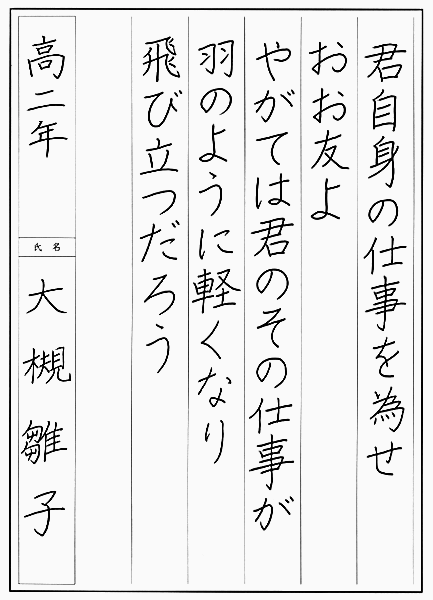 君自身の仕事を為せ
おお友よ
やがては君のその仕事が
羽のように軽くなり
飛び立つだろう
高二年
氏名
大槻雛子